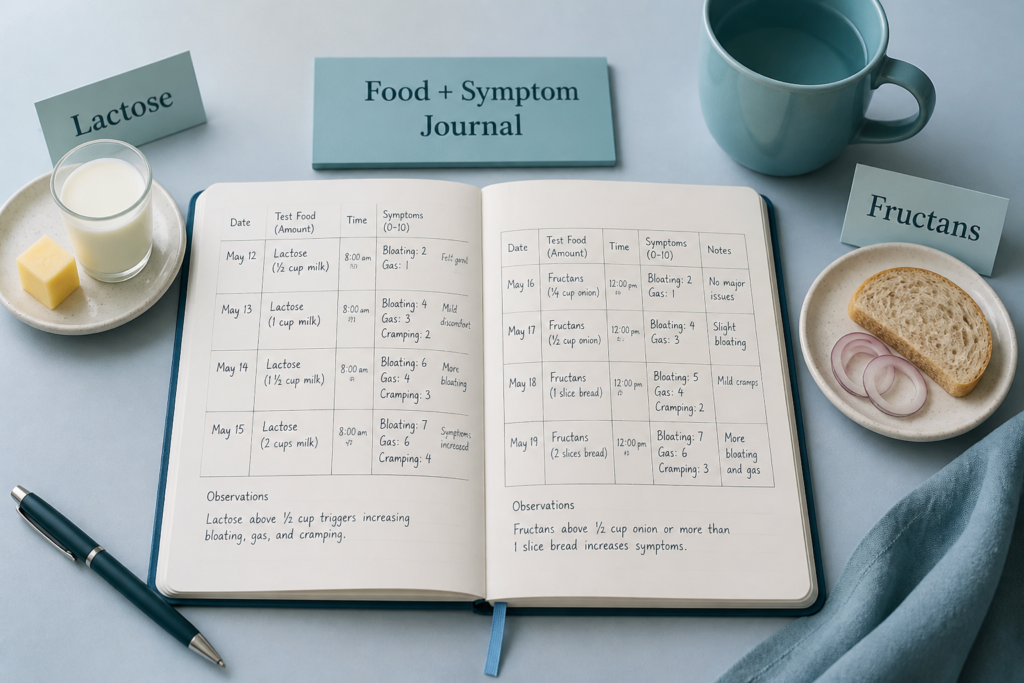 Lactose
Food + Symptom
Journal
Fructans
Date Test Food (Amount) Time Symptoms (0-10)
May 12 Lactose (½ cup milk) 8:00 am Bloating: 2 Gas: 1 Felt good
May 13 Lactose (1 cup milk) 8:00 am Bloating: 4 Gas: 3 Cramping: 2 Mild discomfort
May 14 Lactose (1 ½ cup milk) 8:00 am Bloating: 6 Gas: 4 Cramping: 3 More bloating
May 15 Lactose (2 cups milk) 8:00 am Bloating: 7 Gas: 6 Cramping: 4 Symptoms increased
Observations
Lactose above ½ cup triggers increasing
bloating, gas, and cramping.
Date Test Food (Amount) Time Symptoms (0-10) Notes
May 16 Fructans (¼ cup onion) 12:00 pm Bloating: 2 Gas: 1 No major issues
May 17 Fructans (½ cup onion) 12:00 pm Bloating: 4 Gas: 3 Slight bloating
May 18 Fructans (1 slice bread) 12:00 pm Bloating: 5 Gas: 4 Cramping: 2 Mild cramps
May 19 Fructans (2 slices bread) 12:00 pm Bloating: 7 Gas: 6 Cramping: 3 More bloating and gas
Observations
Fructans above ½ cup onion or more than
1 slice bread increases symptoms.